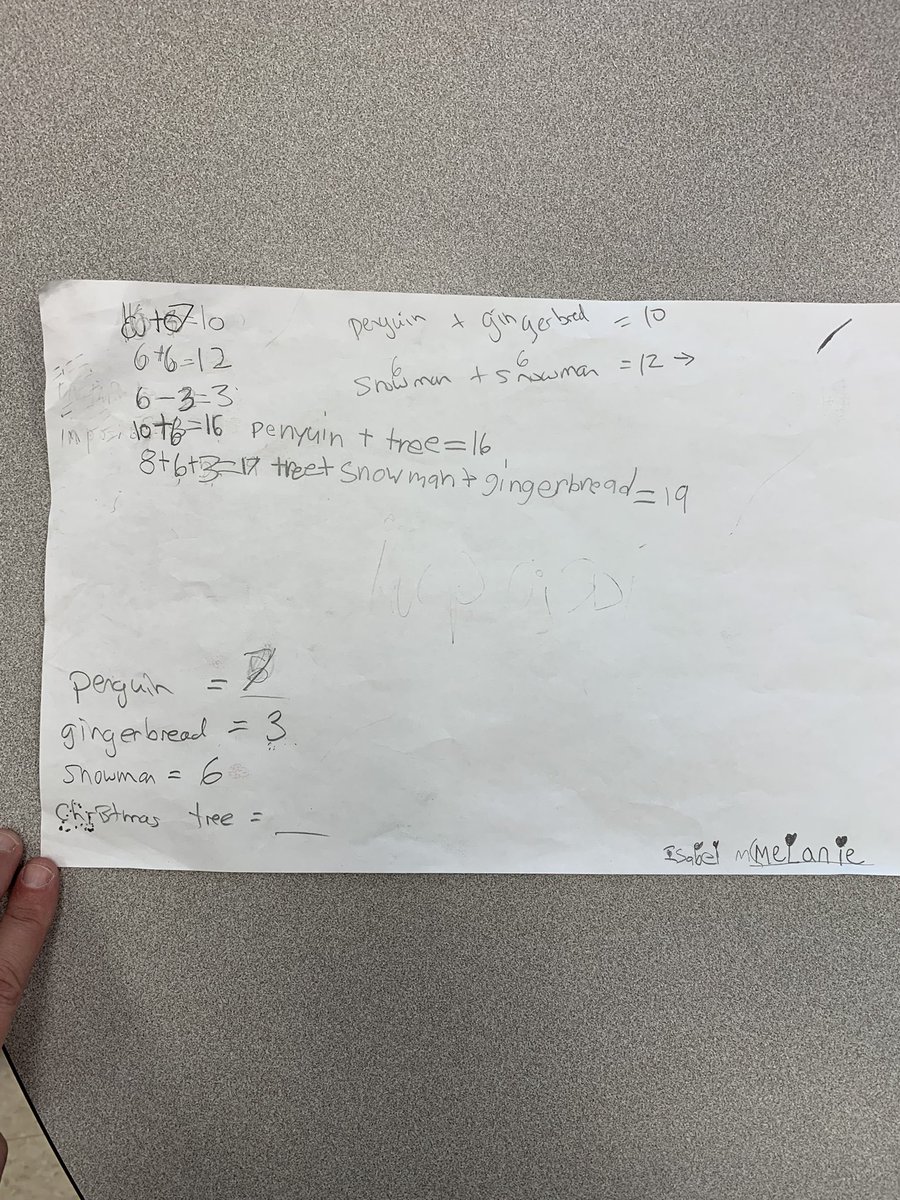 +7=10 penguin + gingerbred = 10
6+6=12
6 6
snowman + snowman = 12 →
6-3=3
10+6=16 penguin + tree=16
8+6+3=17 tree+ snowman+gingerbread=19
penguin =
gingerbread = 3
snowman = 6
christmas tree = __
Isabel Melanie